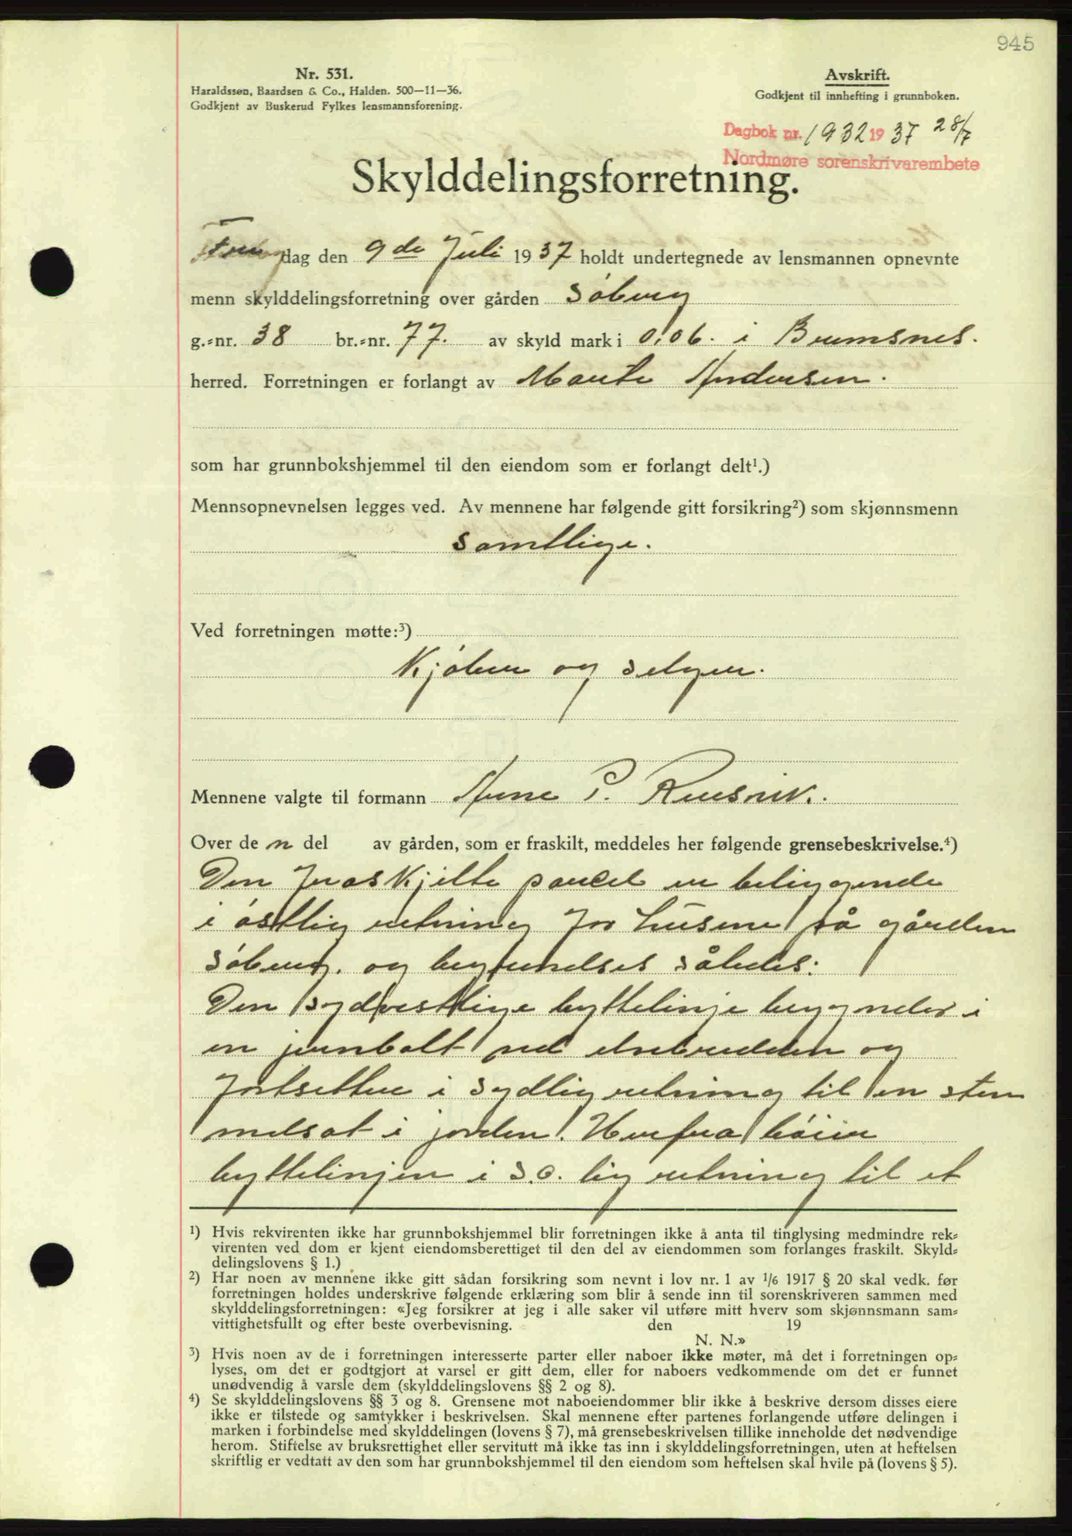 945
Nr. 531.
Haraldssøn, Baardsen & Co., Halden. 500—11—36.
Godkjent av Buskerud Fylkes lensmannsforening.
Avskrift.
Godkjent til innhefting i grunnboken.
Dagbok nr. 1932 1937 28/7
Nordmøre sorenskrivarembete
Skylddelingsforretning.
dag den 9de Juli 1937 holdt undertegnede av lensmannen opnevnte
menn skylddelingsforretning over gården Søberg
g.-nr. 38 br.-nr. 77. av skyld mark i 0,06. i Bremsnes.
herred. Forretningen er forlangt av Andersen.
som har grunnbokshjemmel til den eiendom som er forlangt delt¹.)
Mennsopnevnelsen legges ved. Av mennene har følgende gitt forsikring²) som skjønnsmenn
samtlige.
Ved forretningen møtte:³)
Kjøber og selger.
Mennene valgte til formann Arne P.
Over de n del av gården, som er fraskilt, meddeles her følgende grensebeskrivelse.⁴)
Den fraskjilte parcel er beliggende
i østlig retning for husene på gården
Søberg. og begrendses således:
Den sydvestlige byttelinje begynder i
en jernbolt ved og
fortsetter i sydlig retning til en sten
nedsat i jorden. Herfra bøier
byttelinjen i s.o. lig retning til et
¹) Hvis rekvirenten ikke har grunnbokshjemmel blir forretningen ikke å anta til tinglysing medmindre rek-
virenten ved dom er kjent eiendomsberettiget til den del av eiendommen som forlanges fraskilt. Skyld-
delingslovens § 1.)
²) Har noen av mennene ikke gitt sådan forsikring som nevnt i lov nr. 1 av 1/6 1917 § 20 skal vedk. før
forretningen holdes underskrive følgende erklæring som blir å sende inn til sorenskriveren sammen med
skylddelingsforretningen: «Jeg forsikrer at jeg i alle saker vil utføre mitt hverv som skjønnsmann sam-
vittighetsfullt og efter beste overbevisning. den 19
N. N.»
³) Hvis noen av de i forretningen interesserte parter eller naboer ikke møter, må det i forretningen op-
lyses, om det er godtgjort at varsel er gitt dem, eller for naboers vedkommende om det er funnet
unødvendig å varsle dem (skylddelingslovens §§ 2 og 8).
⁴) Se skylddelingslovens §§ 3 og 8. Grensene mot naboeiendommer blir ikke å beskrive dersom disses eiere
ikke er tilstede og samtykker i beskrivelsen. Skal mennene efter partenes forlangende utføre delingen i
marken i forbindelse med skylddelingen (lovens § 7), må grensebeskrivelsen tillike inneholde det nødvendige
herom. Stiftelse av bruksrettighet eller servitutt må ikke tas inn i skylddelingsforretningen, uten at heftelsen
skriftlig er vedtatt av den som har grunnbokshjemmel til den eiendom som heftelsen skal hvile på (lovens § 5).